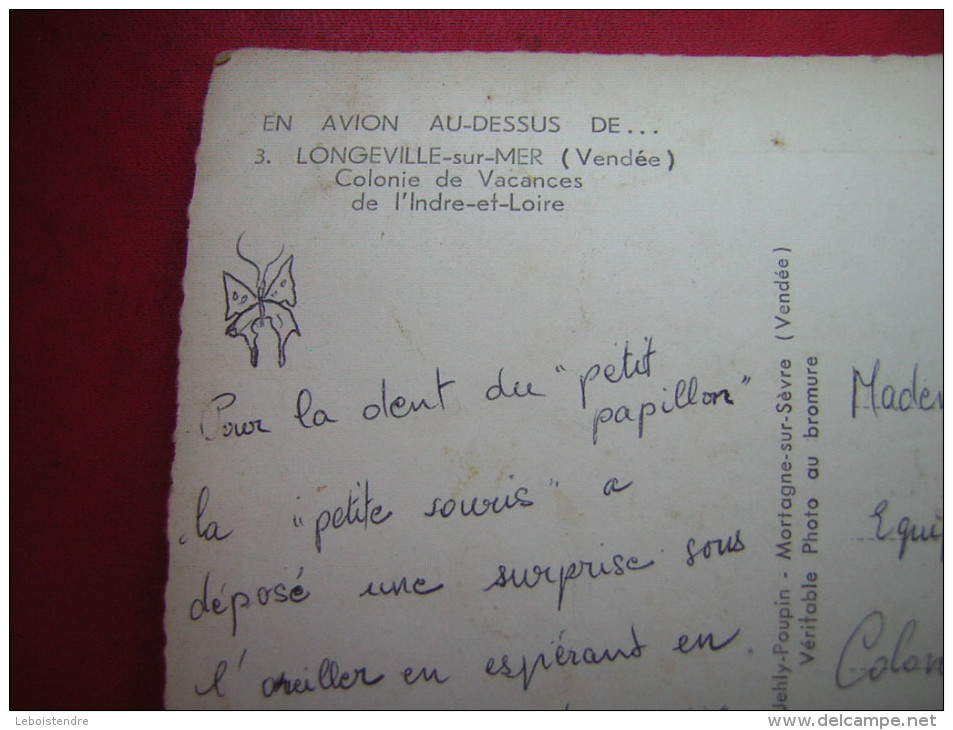 EN AVION AU-DESSUS DE...
3. LONGEVILLE-sur-MER (Vendée)
Colonie de Vacances
de l'Indre-et-Loire
Pour la dent du "petit
papillon"
la "petite souris" a
déposé une surprise sous
l'oreiller en espérant en
Jehly-Poupin - Mortagne-sur-Sèvre (Vendée)
Véritable Photo au bromure
Madem
Equip
Colon
Leboistendre
www.delcampe.net